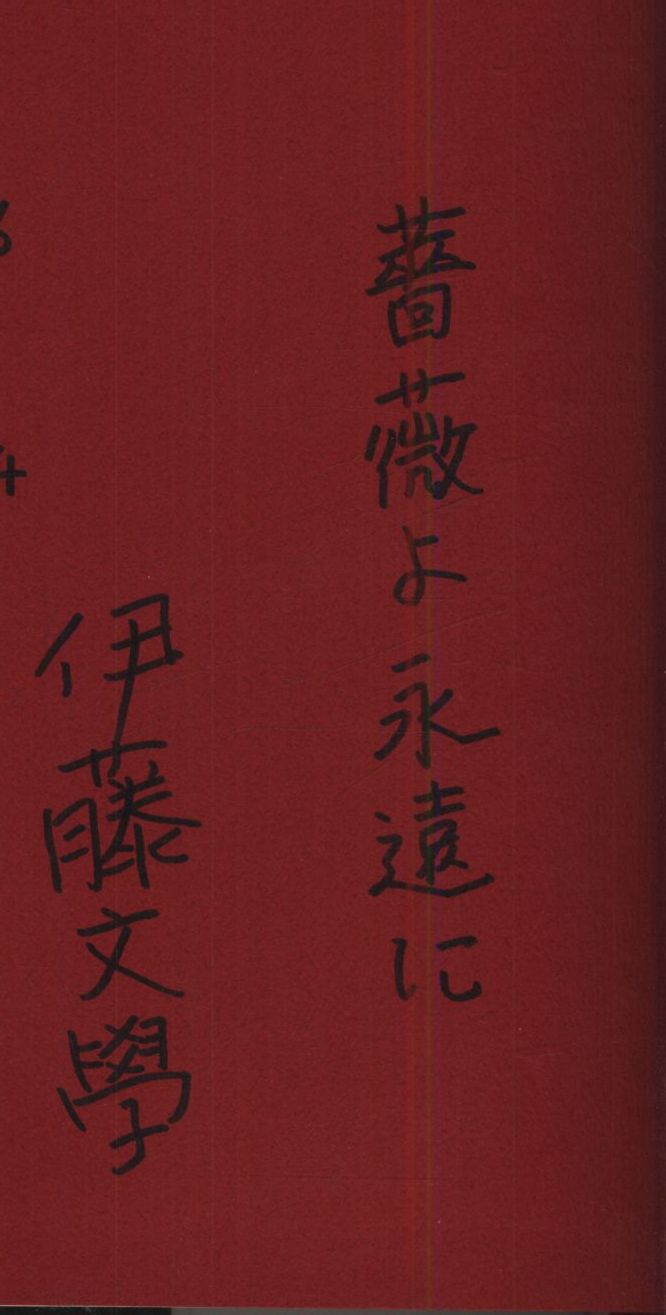 薔薇よ永遠に
伊藤文學